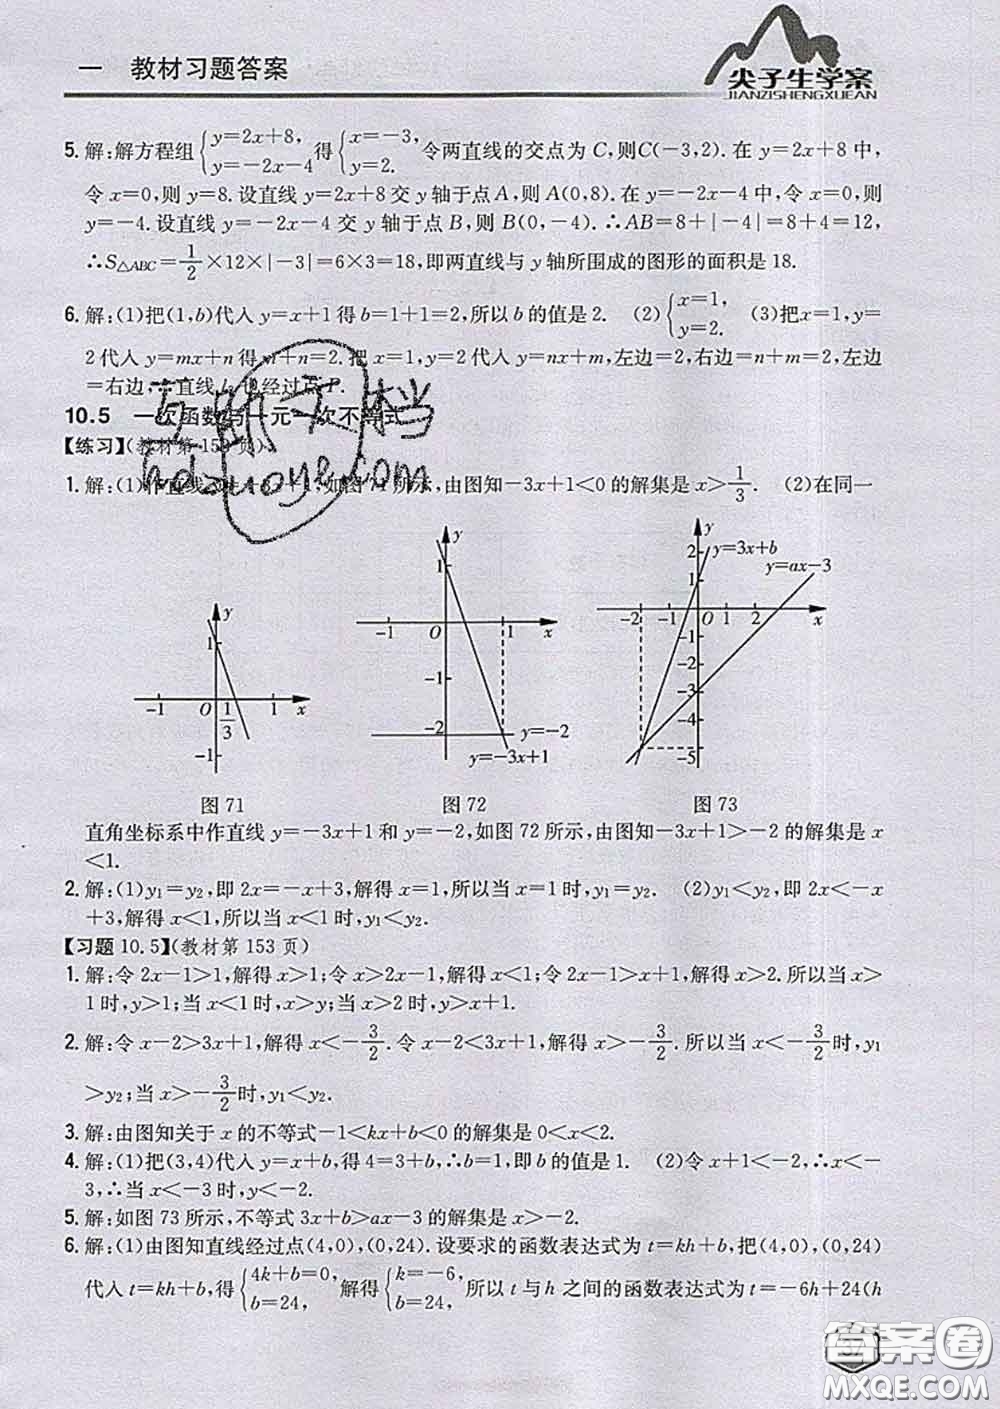 一 教材习题答案
尖子生学案
JIANZISHENGXUEAN
5.解:解方程组{y=2x+8, y=-2x-4 得{x=-3, y=2. 令两直线的交点为C,则C(-3,2).在y=2x+8中,
令x=0,则y=8.设直线y=2x+8交y轴于点A,则A(0,8).在y=-2x-4中,令x=0,则
y=-4.设直线y=-2x-4交y轴于点B,则B(0,-4).∴AB=8+|-4|=8+4=12,
∴S△ABC=1/2×12×|-3|=6×3=18,即两直线与y轴所围成的图形的面积是18.
6.解:(1)把(1,b)代入y=x+1得b=1+1=2,所以b的值是2. (2){x=1, y=2. (3)把x=1,y=
2代入y=mx+n得m+n=2.把x=1,y=2代入y=nx+m,左边=2,右边=n+m=2,左边
=右边,∴直线l 也经过点P.
10.5 一次函数与一元一次不等式
【练习】(教材第15 页)
1.解:(1)作直线y=-3x+1,如图71所示,由图知-3x+1<0的解集是x>1/3. (2)在同一
y 1 -1 O 1/3 1 x -1
图71
y 1 -1 O 1 x -1 -2 y=-2 y=-3x+1
图72
y 2 1 y=3x+b y=ax-3 -2 -1 O 1 2 x -1 -2 -3 -4 -5
图73
直角坐标系中作直线y=-3x+1和y=-2,如图72所示,由图知-3x+1>-2的解集是x
<1.
2.解:(1)y₁=y₂,即2x=-x+3,解得x=1,所以当x=1时,y₁=y₂. (2)y₁<y₂,即2x<-x
+3,解得x<1,所以当x<1时,y₁<y₂.
【习题10.5】(教材第153页)
1.解:令2x-1>1,解得x>1;令x>2x-1,解得x<1;令2x-1>x+1,解得x>2.所以当x>
1时,y>1;当x<1时,x>y;当x>2时,y>x+1.
2.解:令x-2>3x+1,解得x<-3/2.令x-2<3x+1,解得x>-3/2.所以当x<-3/2时,y₁
>y₂;当x>-3/2时,y₁<y₂.
3.解:由图知关于x的不等式-1<kx+b<0的解集是0<x<2.
4.解:(1)把(3,4)代入y=x+b,得4=3+b,∴b=1,即b的值是1. (2)令x+1<-2,∴x<-
3,∴当x<-3时,y<-2.
5.解:如图73所示,不等式3x+b>ax-3的解集是x>-2.
6.解:(1)由图知直线经过点(4,0),(0,24).设要求的函数表达式为t=kh+b,把(4,0),(0,24)
代入t=kh+b,得{4k+b=0, b=24, 解得{k=-6, b=24, 所以t与h之间的函数表达式为t=-6h+24(h
互助文档
hdzuoye.com
答案圈
MXQE.COM